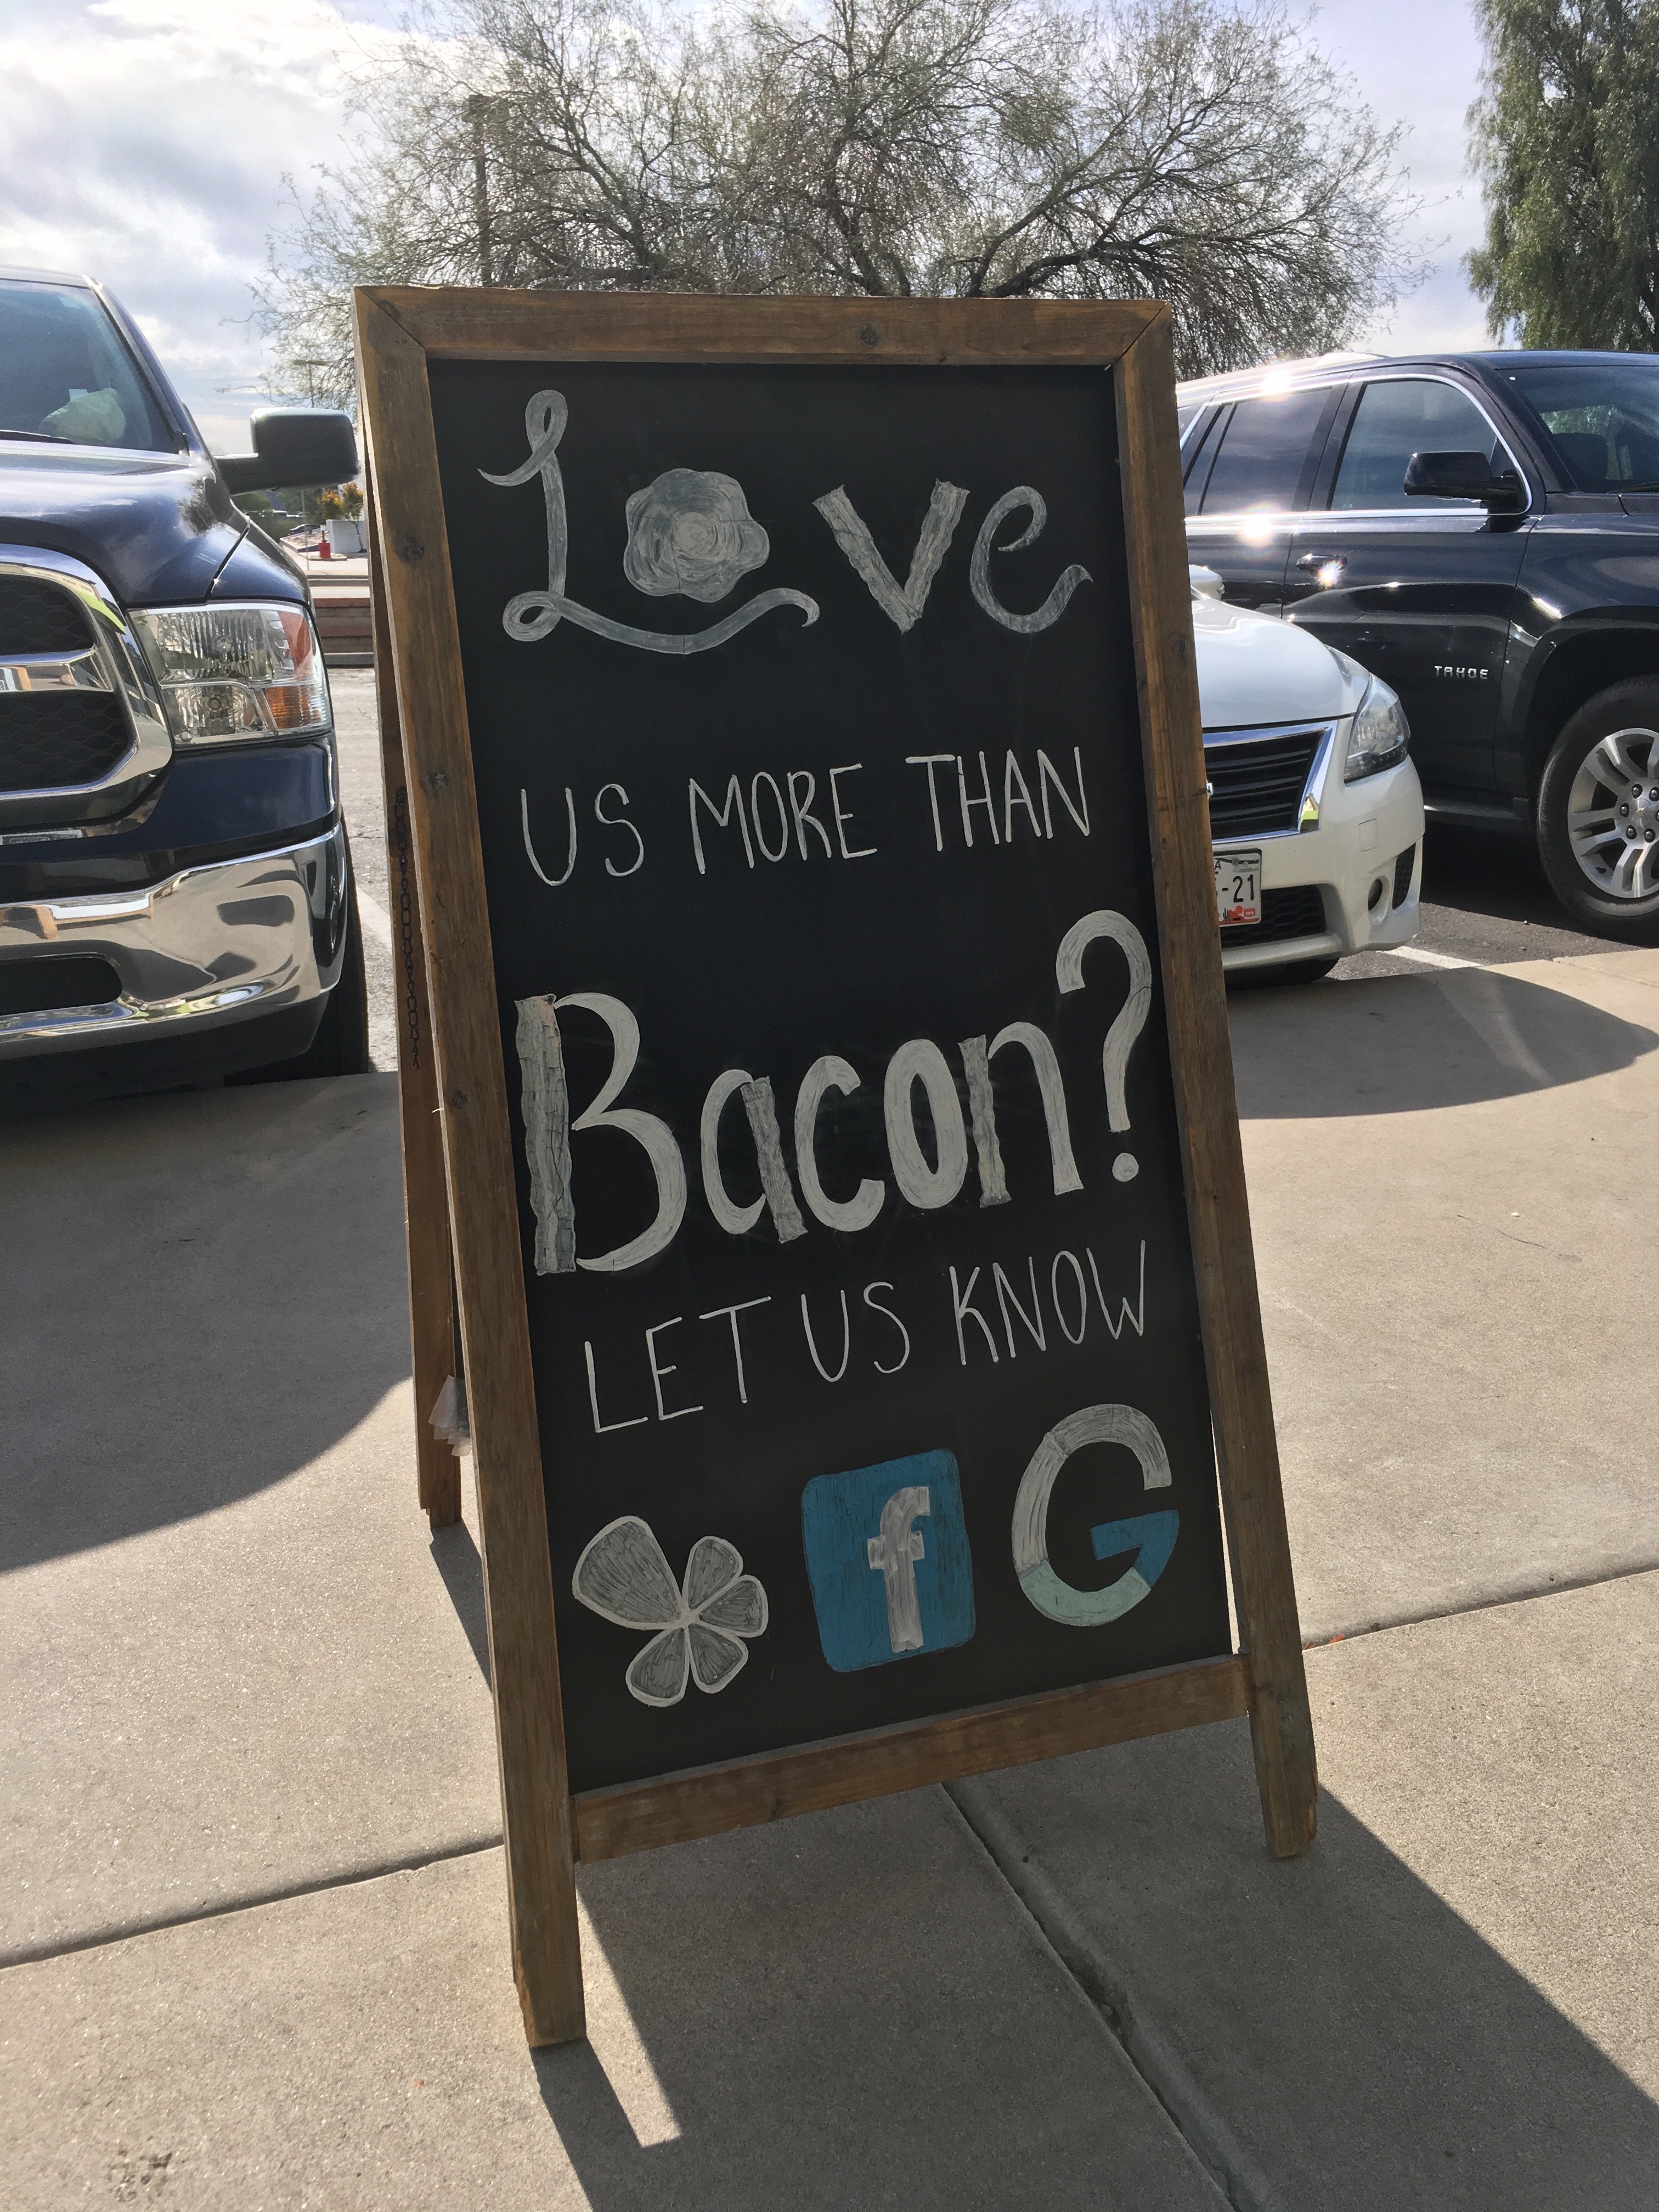 Love
US MORE THAN
Bacon?
LET US KNOW
f G
TAHOE
-21